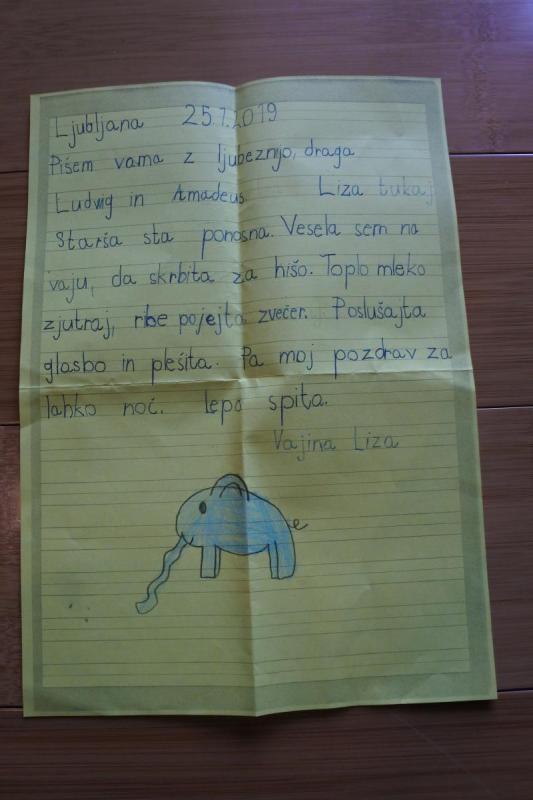 Ljubljana 25.7.2019
Pišem vama z ljubeznijo, draga
Ludwig in Amadeus. Liza tukaj
Starša sta ponosna. Vesela sem na
vaju, da skrbita za hišo. Toplo mleko
zjutraj, ribe pojejta zvečer. Poslušajta
glasbo in plešita. Pa moj pozdrav za
lahko noč. lepo spita.
Vajina Liza